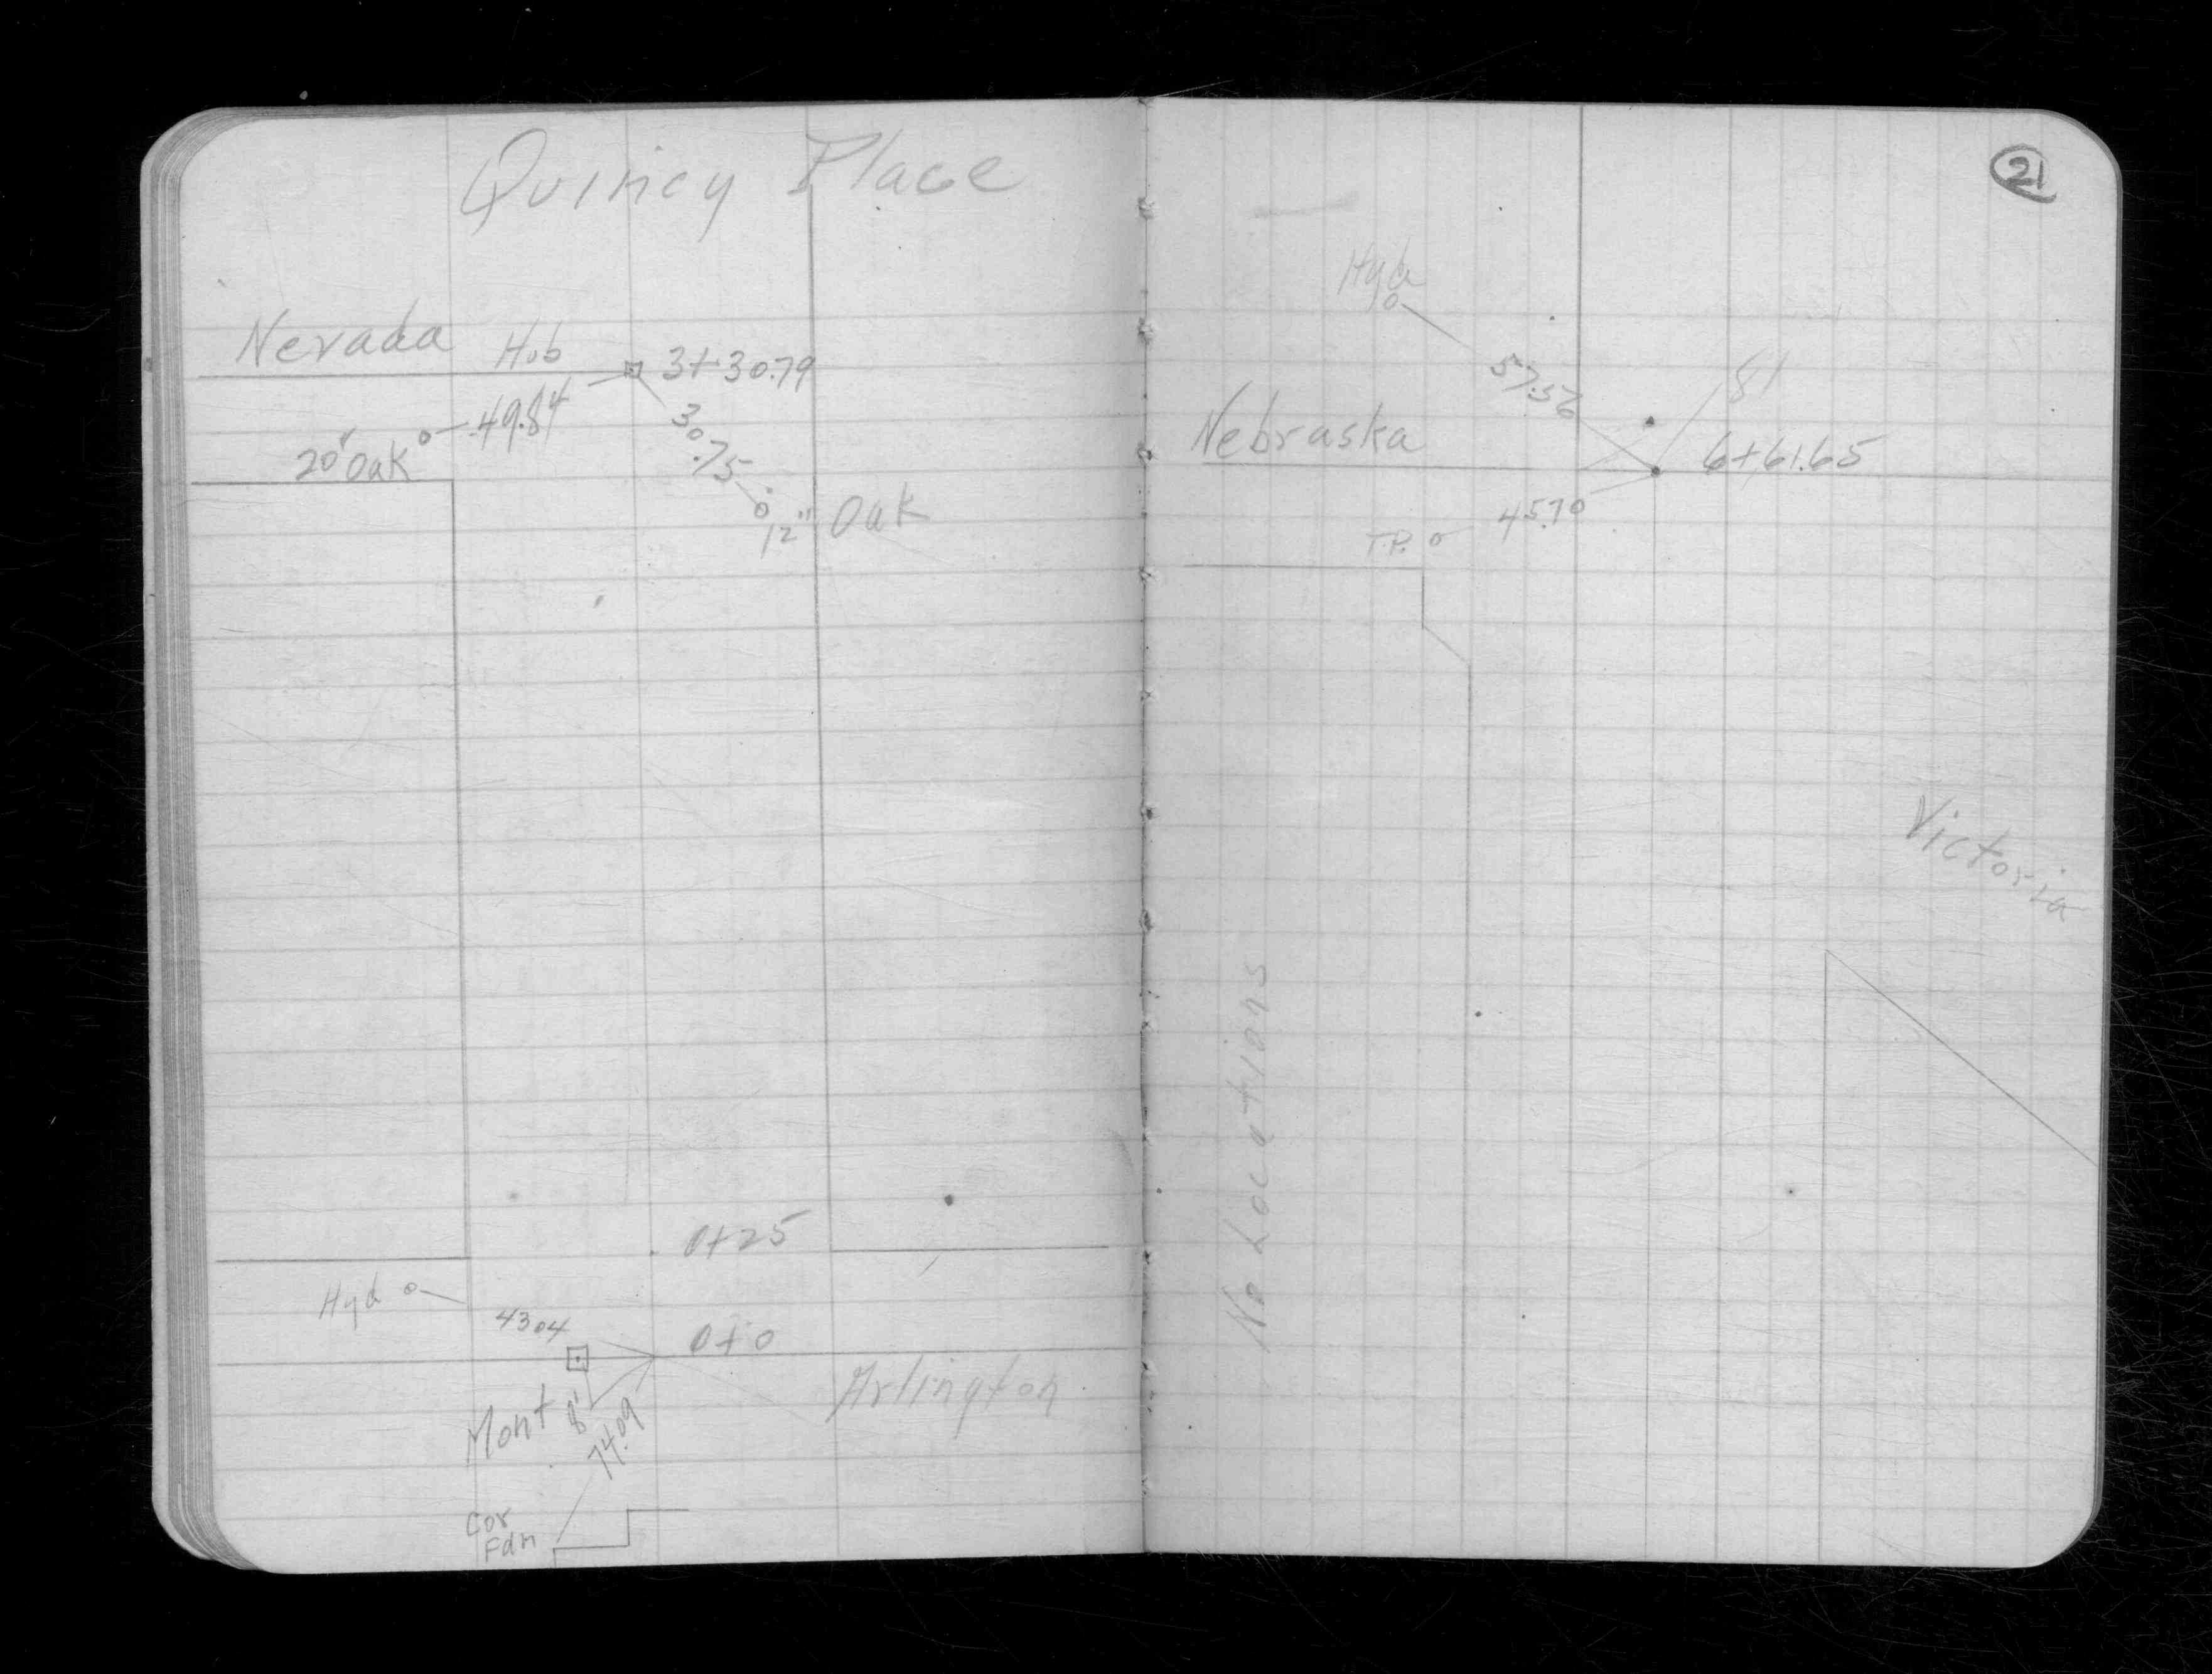 Quincy Place
Nevada
Hub
3+30.79
49.84
20" Oak
30.75
12" Oak
0+25
Hyd
43.04
0+0
Arlington
Mont
8'
74.09
Cor
Fdn
21
Hyd
57.56
81
Nebraska
6+61.65
45.70
T.P.
Victoria
No Locations